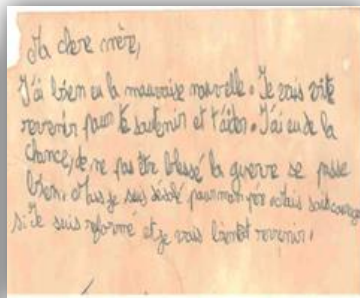 Ma chere mère,
J'ai bien eu la mauvaise nouvelle. Je vais vite
revenir pour te soutenir et t'aider. J'ai eu de la
chance, de ne pas être blessé la guerre se passe
bien. Mais je suis désolé pour mon père. Mais sois courage
si je suis reformé et je vais bientôt revenir.